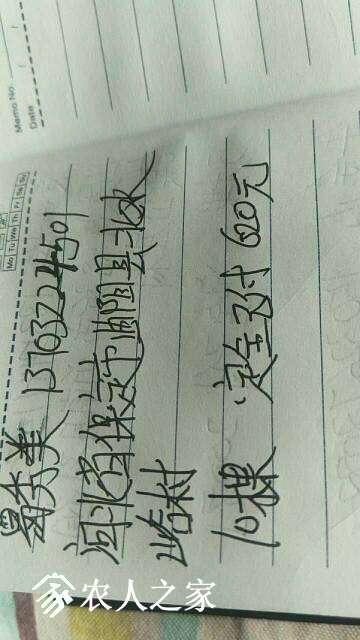 Memo No.
Date
Mo Tu We Th Fr Sa Su
秀美 13703224501
河北省保定市曲阳县北水
峪村
10棵 定金已付 600元
农人之家